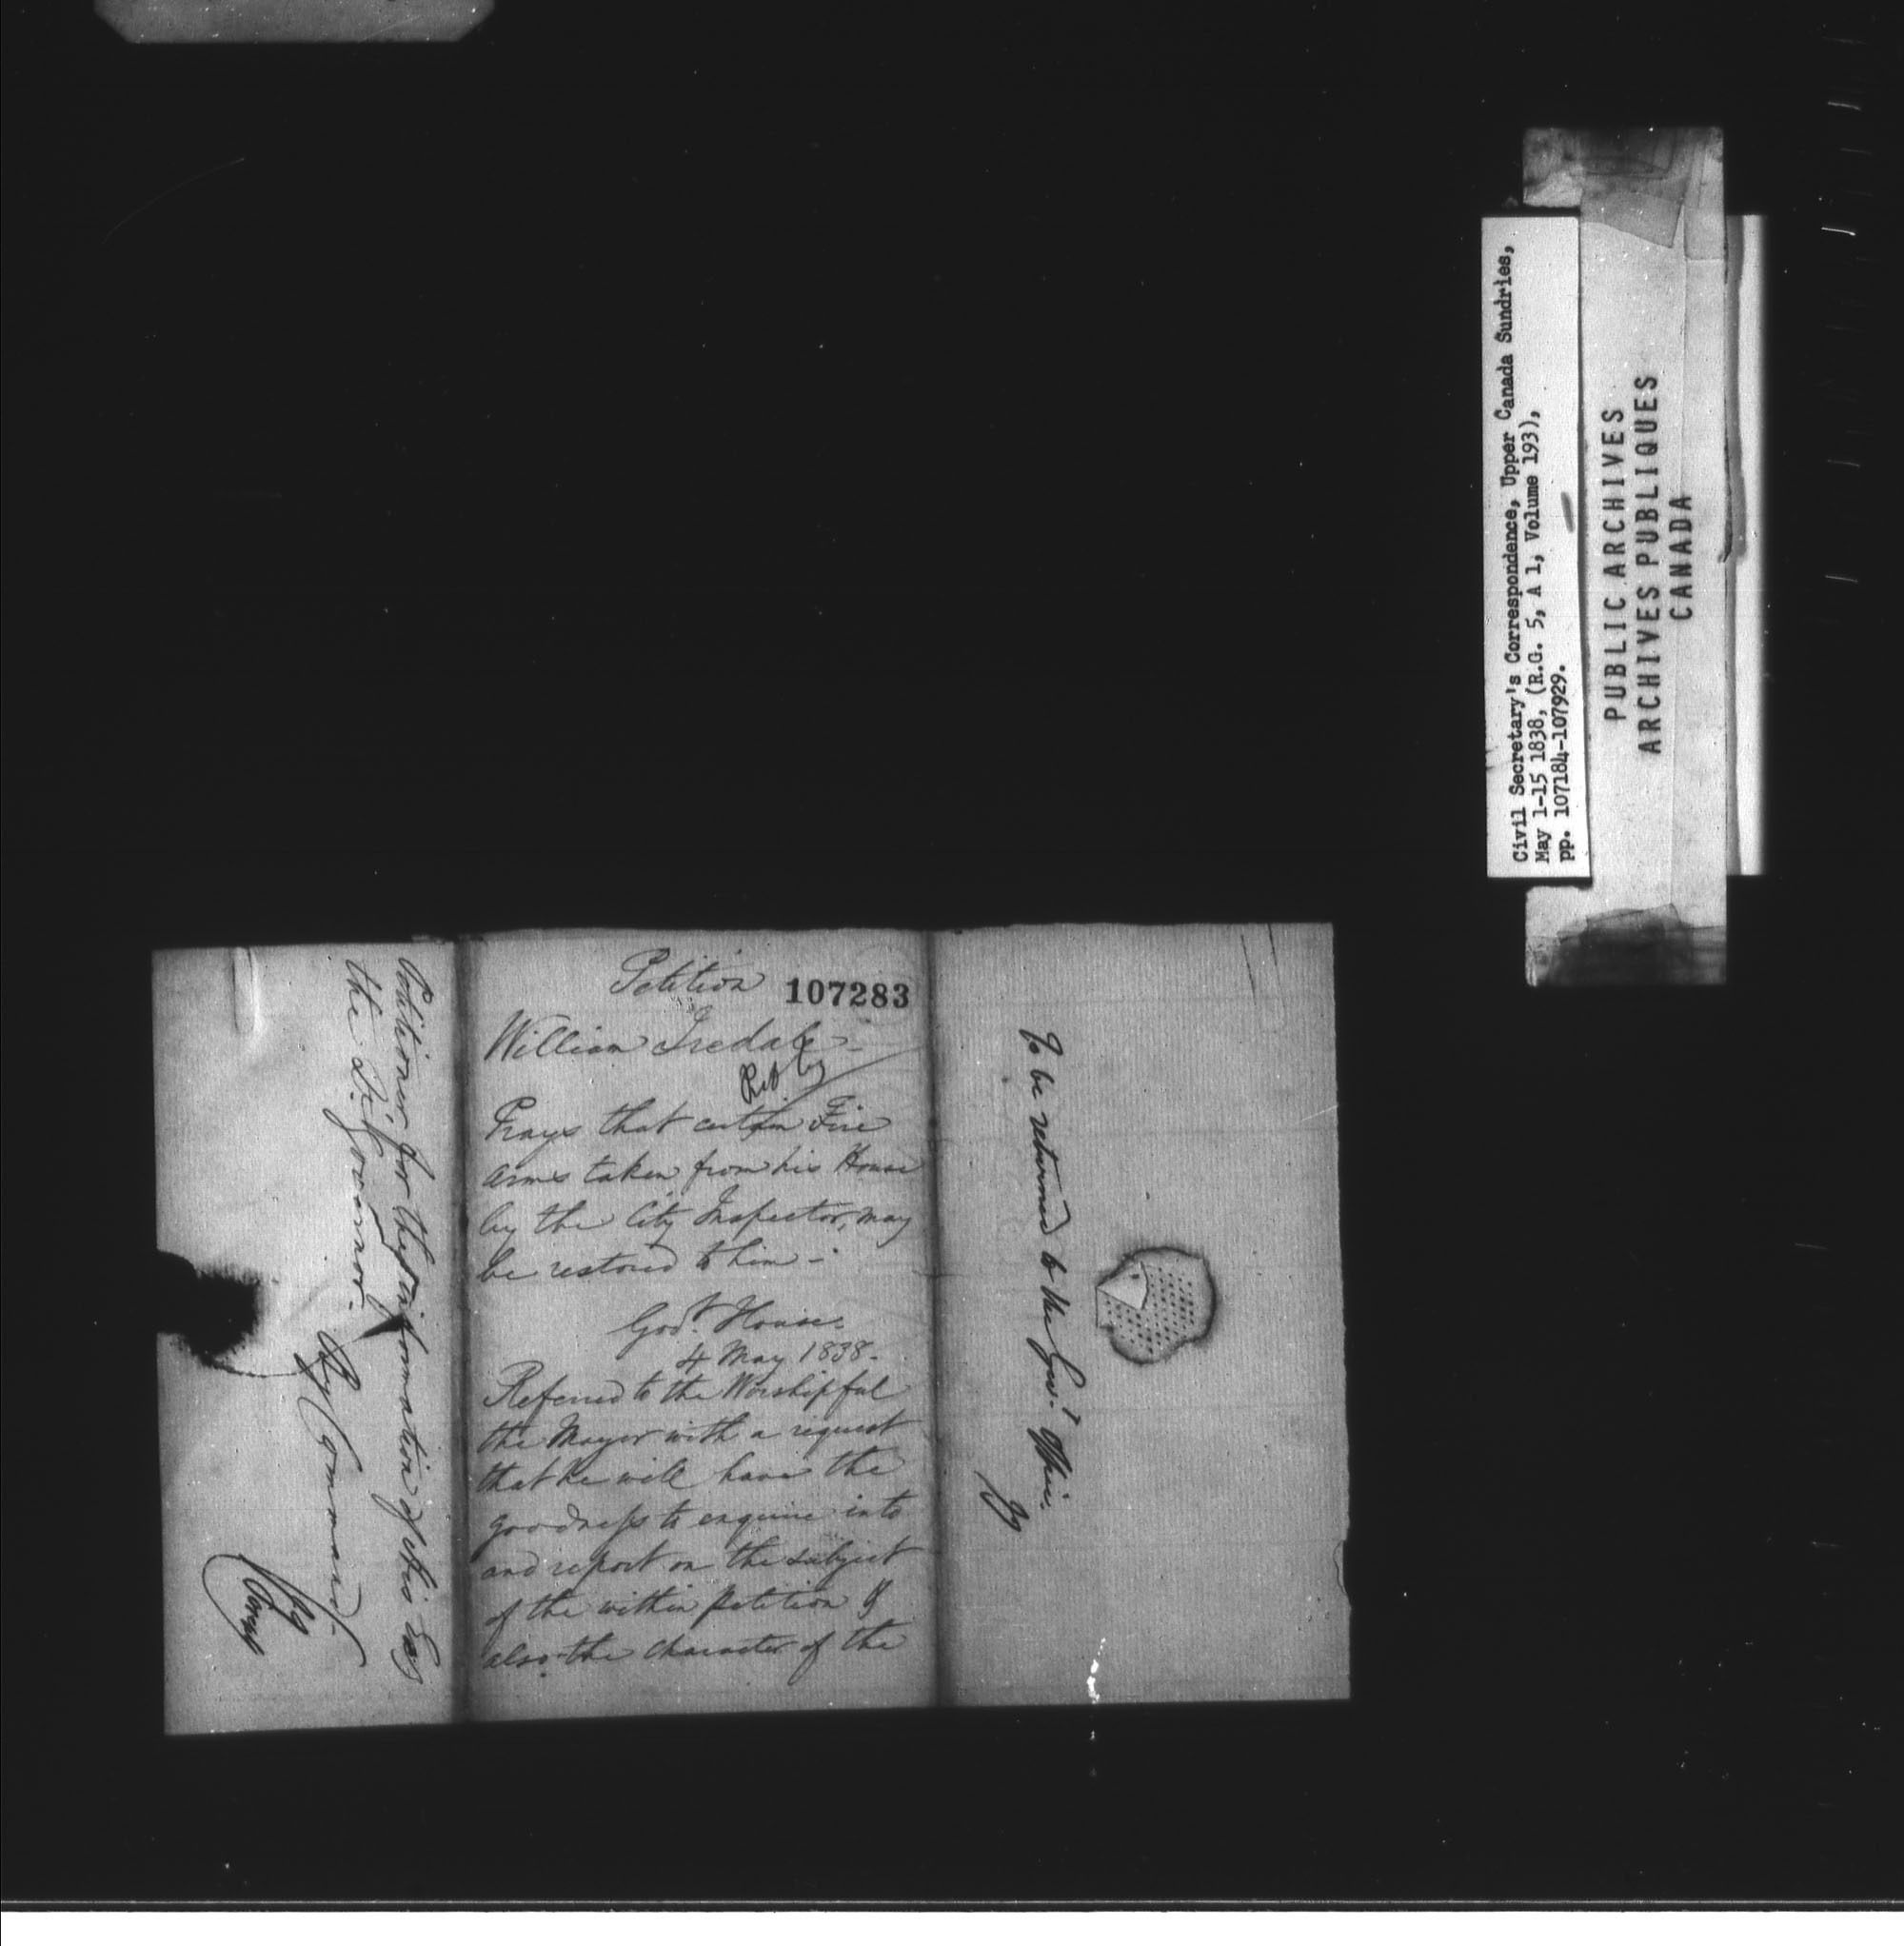 Petition 107283
William Iredale -
Prays that certain Fire
arms taken from his House
by the City Inspector, may
be restored to him -
Govt. House.
4 May 1838.
Referred to the Worshipful
the Mayor with a request
that he will have the
goodness to enquire into
and report on the subject
of the within petition &
also the character of the
Petitioner for the information of His Exy
the Lt. Governor.
By Command.
To be returned to the Govt. Office.
Civil Secretary's Correspondence, Upper Canada Sundries,
May 1-15 1838, (R.G. 5, A 1, Volume 193),
pp. 107184-107929.
PUBLIC ARCHIVES
ARCHIVES PUBLIQUES
CANADA